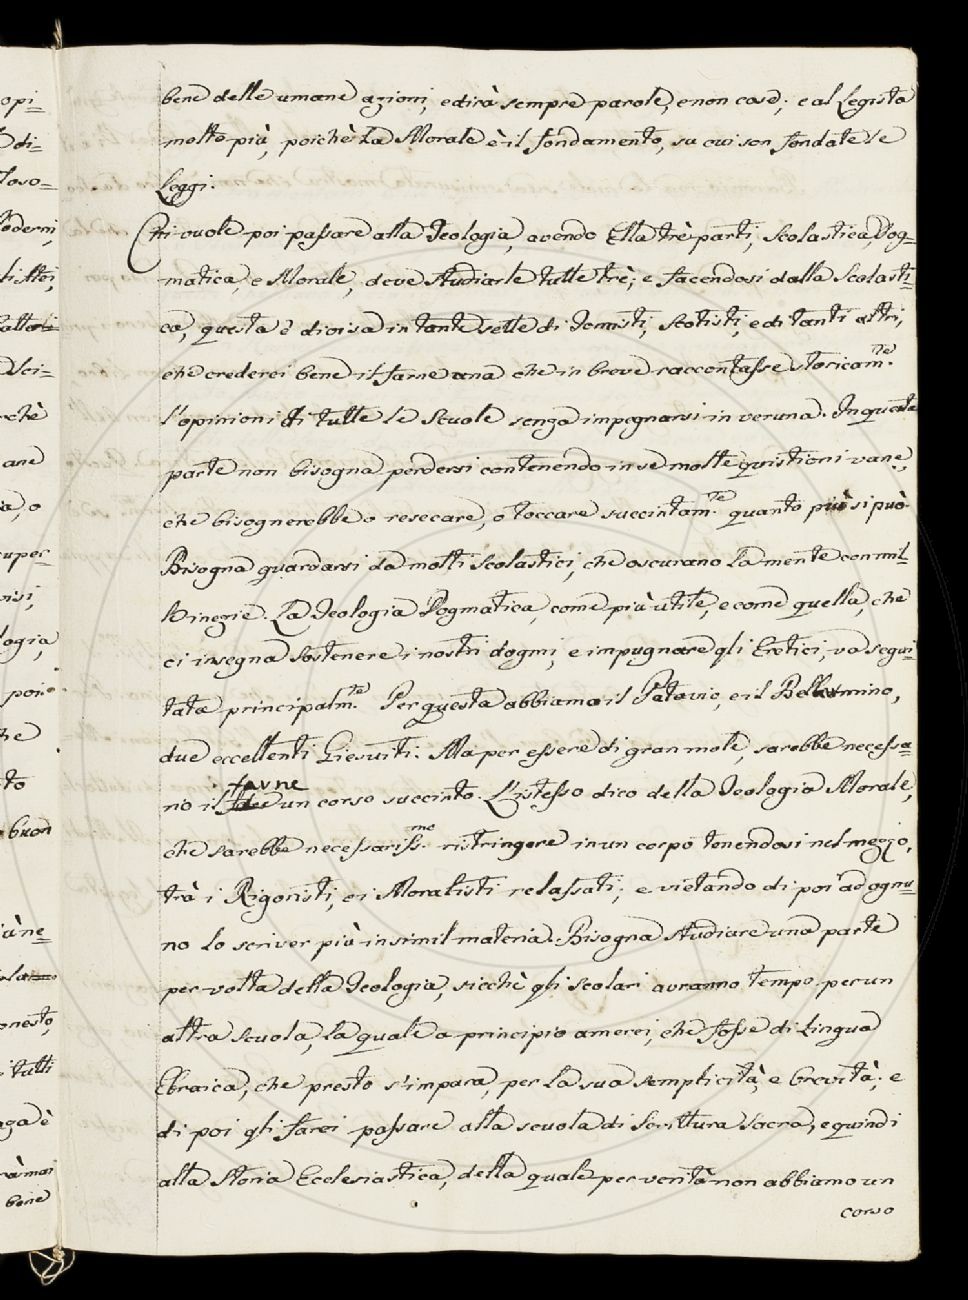 bene delle umane azioni, e dirà sempre parole, e non cose; e al Legista
molto più, poichè La Morale è il fondamento, su cui son fondate le
Leggi.
Chi vuole poi passare alla Teologia, avendo Ella trè parti, Scolastica Dog=
matica, e Morale, deve studiarle tutte trè; e facendosi dalla Scolasti=
ca, questa è divisa in tante sette di Tomisti, Scotisti, e di tanti altri,
che crederei bene il farne una che in breve raccontasse storicam.te
l'opinioni di tutte le Scuole senza impegnarsi in veruna. In questa
parte non bisogna perdersi contenendo in se molte quistioni vane,
che bisognerebbe o resecare, o toccare succintam.te quanto più si può.
Bisogna guardarsi da molti Scolastici, che oscurano La mente con mil=
le inezie. La Teologia Dogmatica, come più utile, e come quella, che
ci insegna sostenere i nostri dogmi, e impugnare gli Eretici, va segui=
tata principalm.te Per questa abbiamo il Petavio, e il Bellarmino,
due eccellenti Giesuiti. Ma per essere di gran mole, sarebbe necessa=
rio il farne un corso succinto. L'istesso dico della Teologia Morale,
che sarebbe necessariss.mo ristringere in un corpo tenendosi nel mezzo,
trà i Rigoristi, e i Moralisti relassati; e vietando di poi ad ognu=
no lo scriver più in simil materia. Bisogna studiare una parte
per volta della Teologia, sicchè gli Scolari avranno tempo per un
altra Scuola, La quale a principio amerei, che fosse di Lingua
Ebraica, che presto s'impara, per La sua semplicità, e brevità; e
di poi gli farei passare alla scuola di Scrittura Sacra, e quindi
alla Storia Ecclesiastica, della quale per verità non abbiamo un
corso